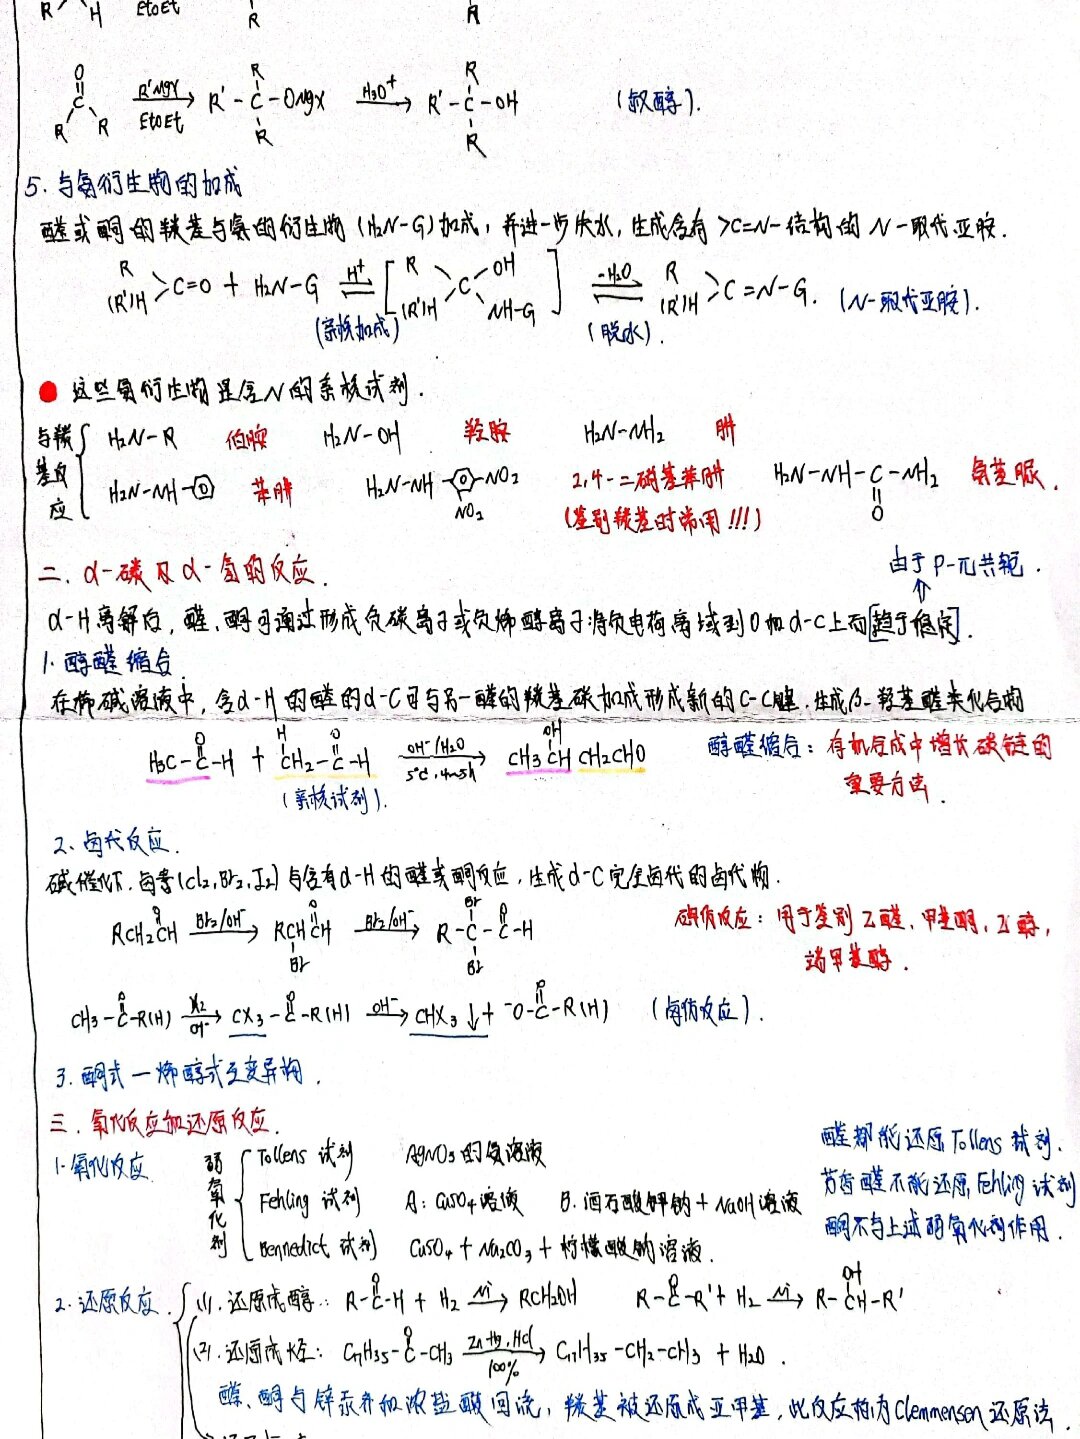 R H EtOEt R R
O=C(R)(R) R'MgX/EtOEt → R'-C(R)(R)-OMgX H₃O⁺→ R'-C(R)(R)-OH (叔醇).
5. 与氨衍生物的加成
醛或酮的羰基与氨的衍生物 (H₂N-G)加成, 并进一步失水, 生成含有 >C=N-结构的 N-取代亚胺.
R (R')H >C=O + H₂N-G H⁺⇌ [R (R')H >C< OH NH-G] -H₂O⇌ R (R')H >C=N-G. (N-取代亚胺).
(亲核加成) (脱水).
● 这些氨衍生物是含N的亲核试剂.
与羰基反应 { H₂N-R 伯胺 H₂N-OH 羟胺 H₂N-NH₂ 肼
H₂N-NH-⌬ 苯肼 H₂N-NH-⌬-NO₂ NO₂ 2,4-二硝基苯肼 H₂N-NH-C(=O)-NH₂ 氨基脲.
(鉴别羰基时常用!!!)
二. α-碳及α-氢的反应.
由于 P-π共轭.
α-H离解后, 醛、酮可通过形成负碳离子或负烯醇离子将负电荷离域到O和α-C上而[趋于稳定].
1. 醇醛缩合
在稀碱溶液中, 含α-H的醛的α-C可与另一醛的羰基碳加成形成新的C-C键. 生成β-羟基醛类化合物
H₃C-C(=O)-H + CH₂(H)-C(=O)-H OH⁻/H₂O 5℃, 4~5h → CH₃CH(OH)CH₂CHO
(亲核试剂).
醇醛缩合: 有机合成中增长碳链的
重要方法.
2. 卤代反应.
碱催化下. 卤素(Cl₂, Br₂, I₂)与含有α-H的醛或酮反应, 生成α-C完全卤代的卤代物.
RCH₂CH(=O) Br₂/OH⁻→ RCH(Br)CH(=O) Br₂/OH⁻→ R-C(Br)(Br)-C(=O)-H
碘仿反应: 用于鉴别乙醛, 甲基酮, 乙醇,
端甲基醇.
CH₃-C(=O)-R(H) X₂/OH⁻→ CX₃-C(=O)-R(H) OH⁻→ CHX₃↓ + ⁻O-C(=O)-R(H) (卤仿反应).
3. 酮式—烯醇式互变异构.
三. 氧化反应和还原反应.
1. 氧化反应 弱氧化剂 { Tollens 试剂 AgNO₃的氨溶液
Fehling 试剂 A: CuSO₄溶液 B. 酒石酸钾钠 + NaOH溶液
Bennedict 试剂 CuSO₄ + Na₂CO₃ + 柠檬酸钠溶液.
醛都能还原Tollens 试剂.
芳香醛不能还原 Fehling 试剂
酮不与上述弱氧化剂作用.
2. 还原反应. { (1). 还原成醇: R-C(=O)-H + H₂ Ni→ RCH₂OH R-C(=O)-R' + H₂ Ni→ R-CH(OH)-R'
(2). 还原成烃: C₁₇H₃₅-C(=O)-CH₃ Zn-Hg, HCl 100%→ C₁₇H₃₅-CH₂-CH₃ + H₂O.
醛、酮与锌汞齐和浓盐酸回流, 羰基被还原成亚甲基, 此反应称为Clemmensen 还原法.